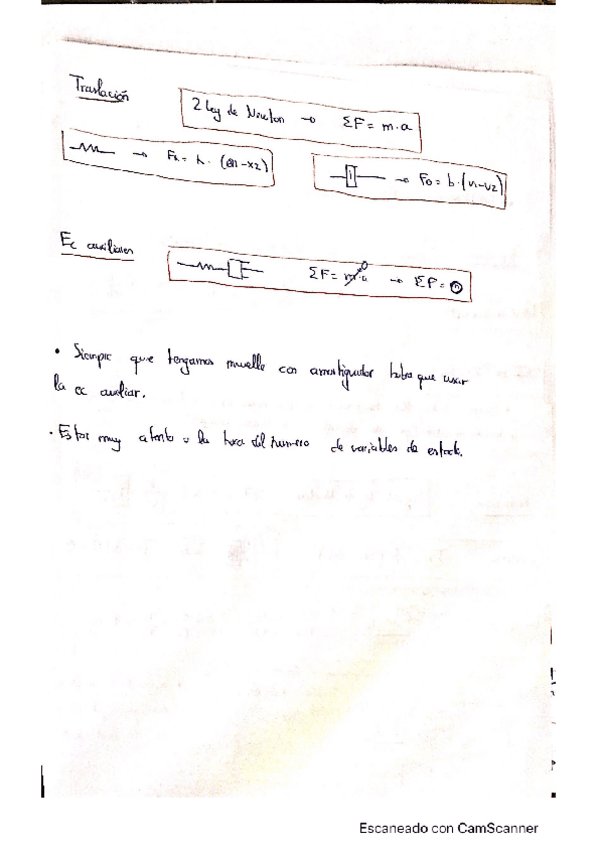 Traslación
2 Ley de Newton → ΣF = m·a
→ Fk = k · (x1-x2)
→ FD = b·(v1-v2)
Ec auxiliares
ΣF = m·a 0 → ΣF = 0
• Siempre que tengamos muelle con amortiguador habra que usar
la ec auxiliar.
· Estar muy atento a la hora del numero de variables de estado.
Escaneado con CamScanner